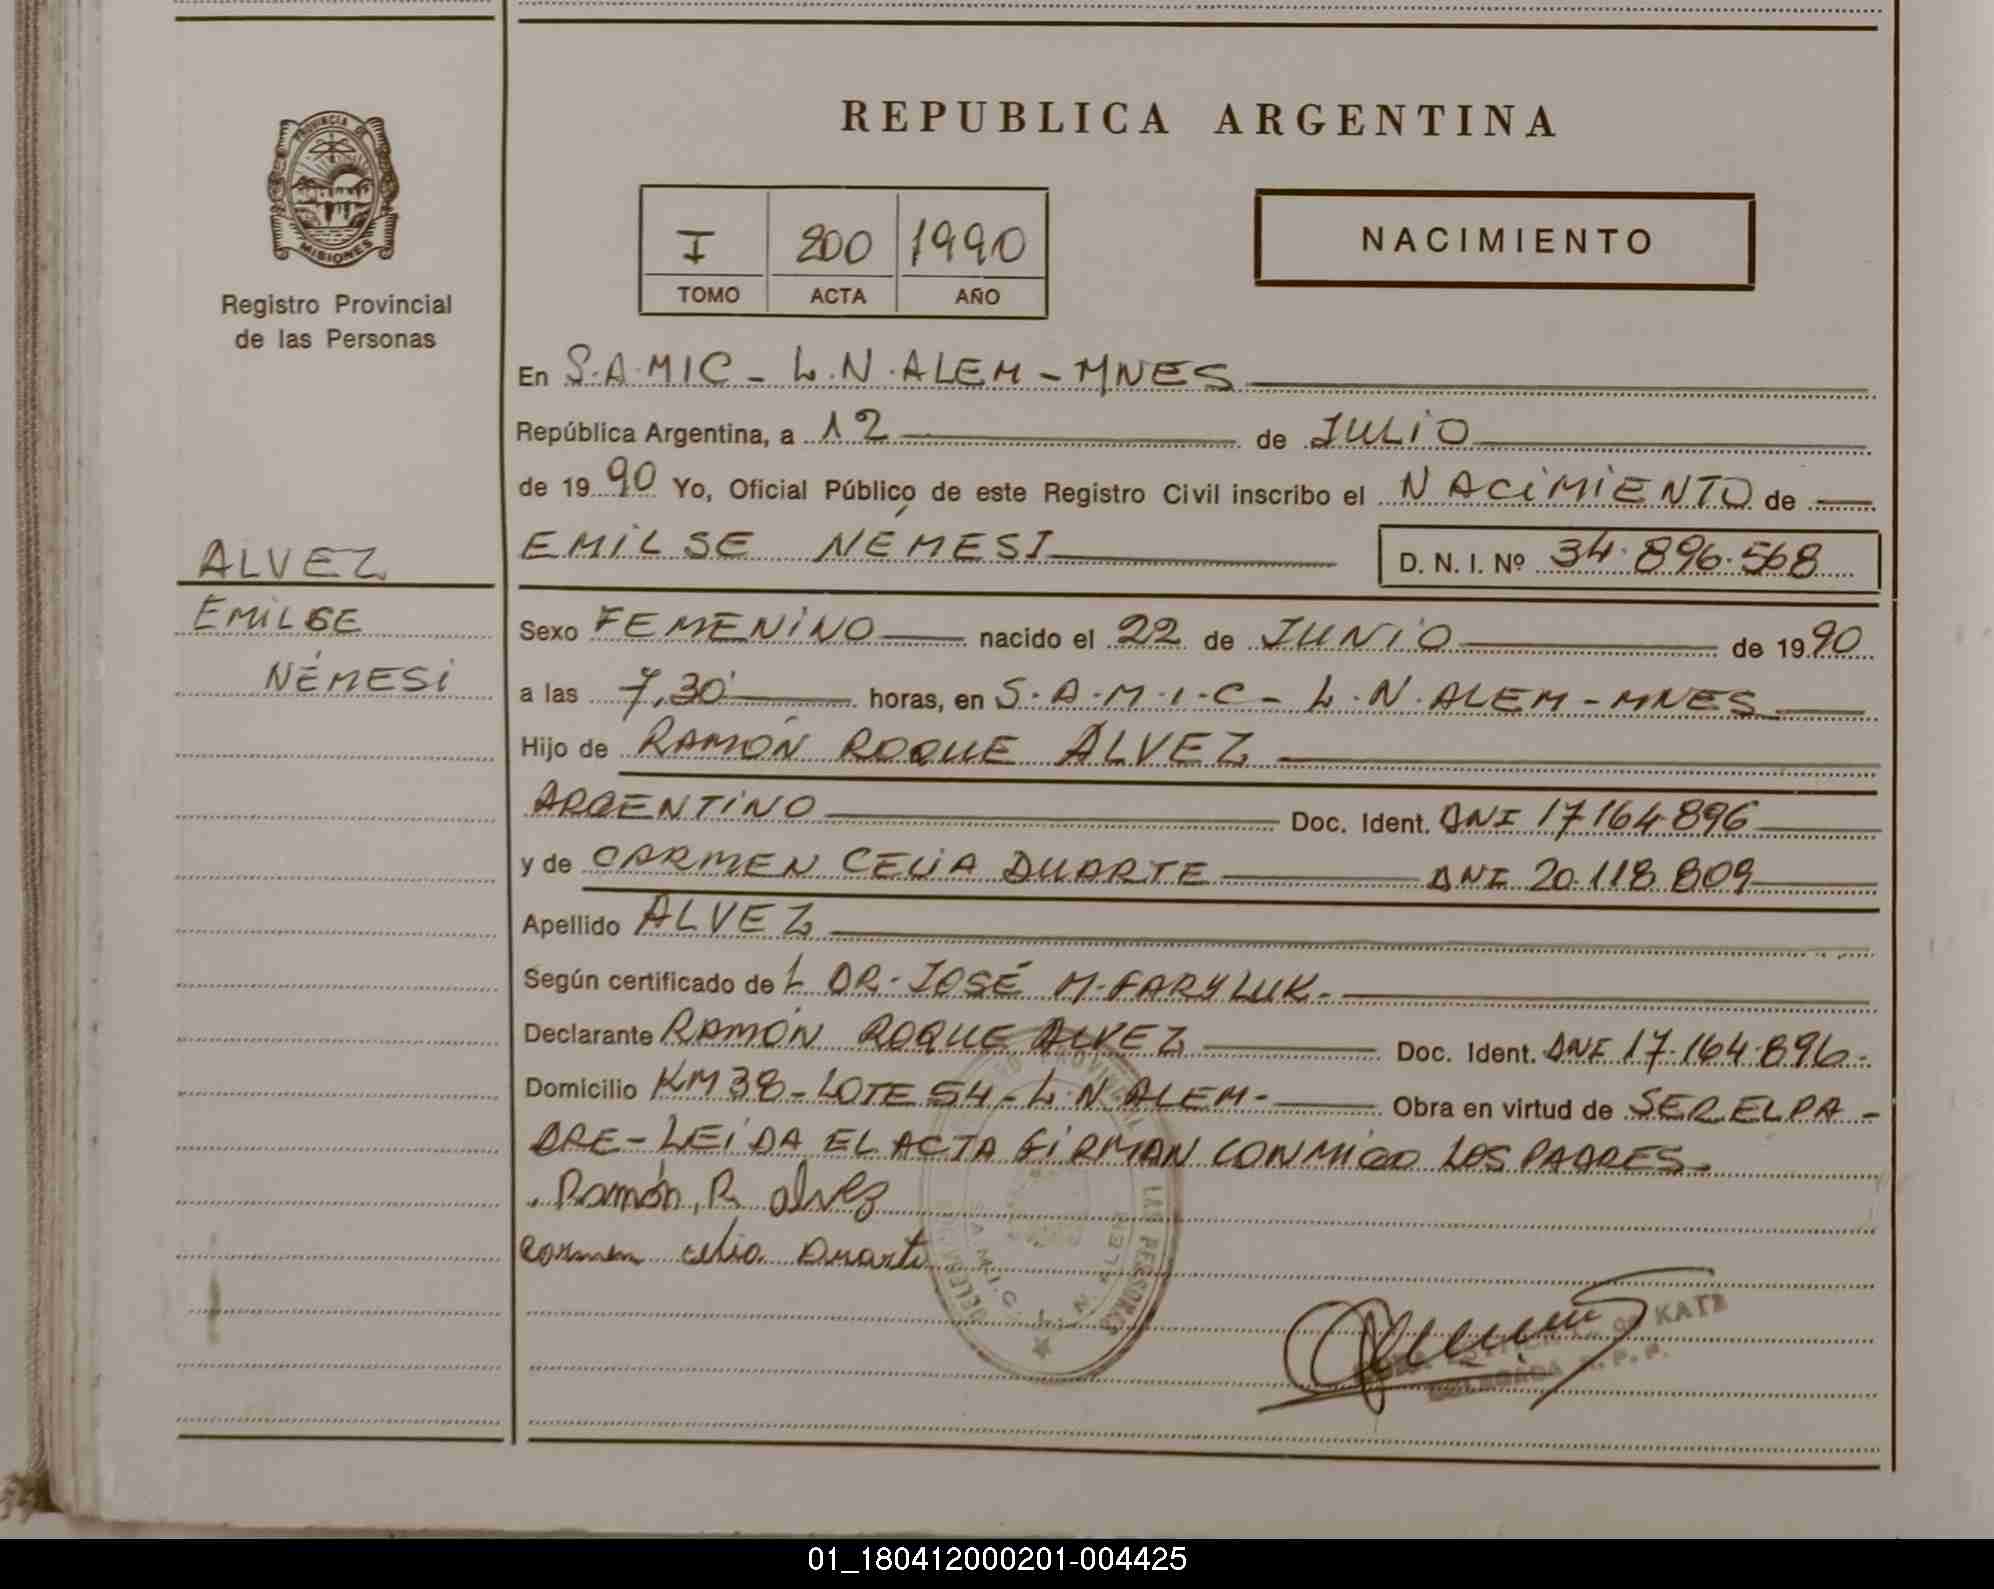 REPUBLICA ARGENTINA
PROVINCIA DE MISIONES
Registro Provincial
de las Personas
I 200 1990
TOMO ACTA AÑO
NACIMIENTO
En S.A.MIC - L.N.ALEM - MNES
República Argentina, a 12 de JULIO
de 1990 Yo, Oficial Público de este Registro Civil inscribo el NACIMIENTO de
EMILSE NÉMESI
D. N. I. Nº 34.896.568
ALVEZ
EMILSE
NÉMESI
Sexo FEMENINO nacido el 22 de JUNIO de 1990
a las 7,30 horas, en S.A.M.I.C - L.N.ALEM - MNES
Hijo de RAMÓN ROQUE ALVEZ
ARGENTINO Doc. Ident. DNI 17164896
y de CARMEN CELIA DUARTE DNI 20.118.809
Apellido ALVEZ
Según certificado de L DR. JOSÉ M. FARYLUK.
Declarante RAMÓN ROQUE ALVEZ Doc. Ident. DNI 17.164.896.
Domicilio KM38 - LOTE 54 - L.N.ALEM - Obra en virtud de SER EL PA-
DRE - LEÍDA EL ACTA FIRMAN CONMIGO LOS PADRES.
Ramón, R alvez
Carmen celia Duarte
LAS PERSONAS
S.A.M.I.C. L.N. ALEM
KATZ
DELEGADA R.P.P.
01_180412000201-004425